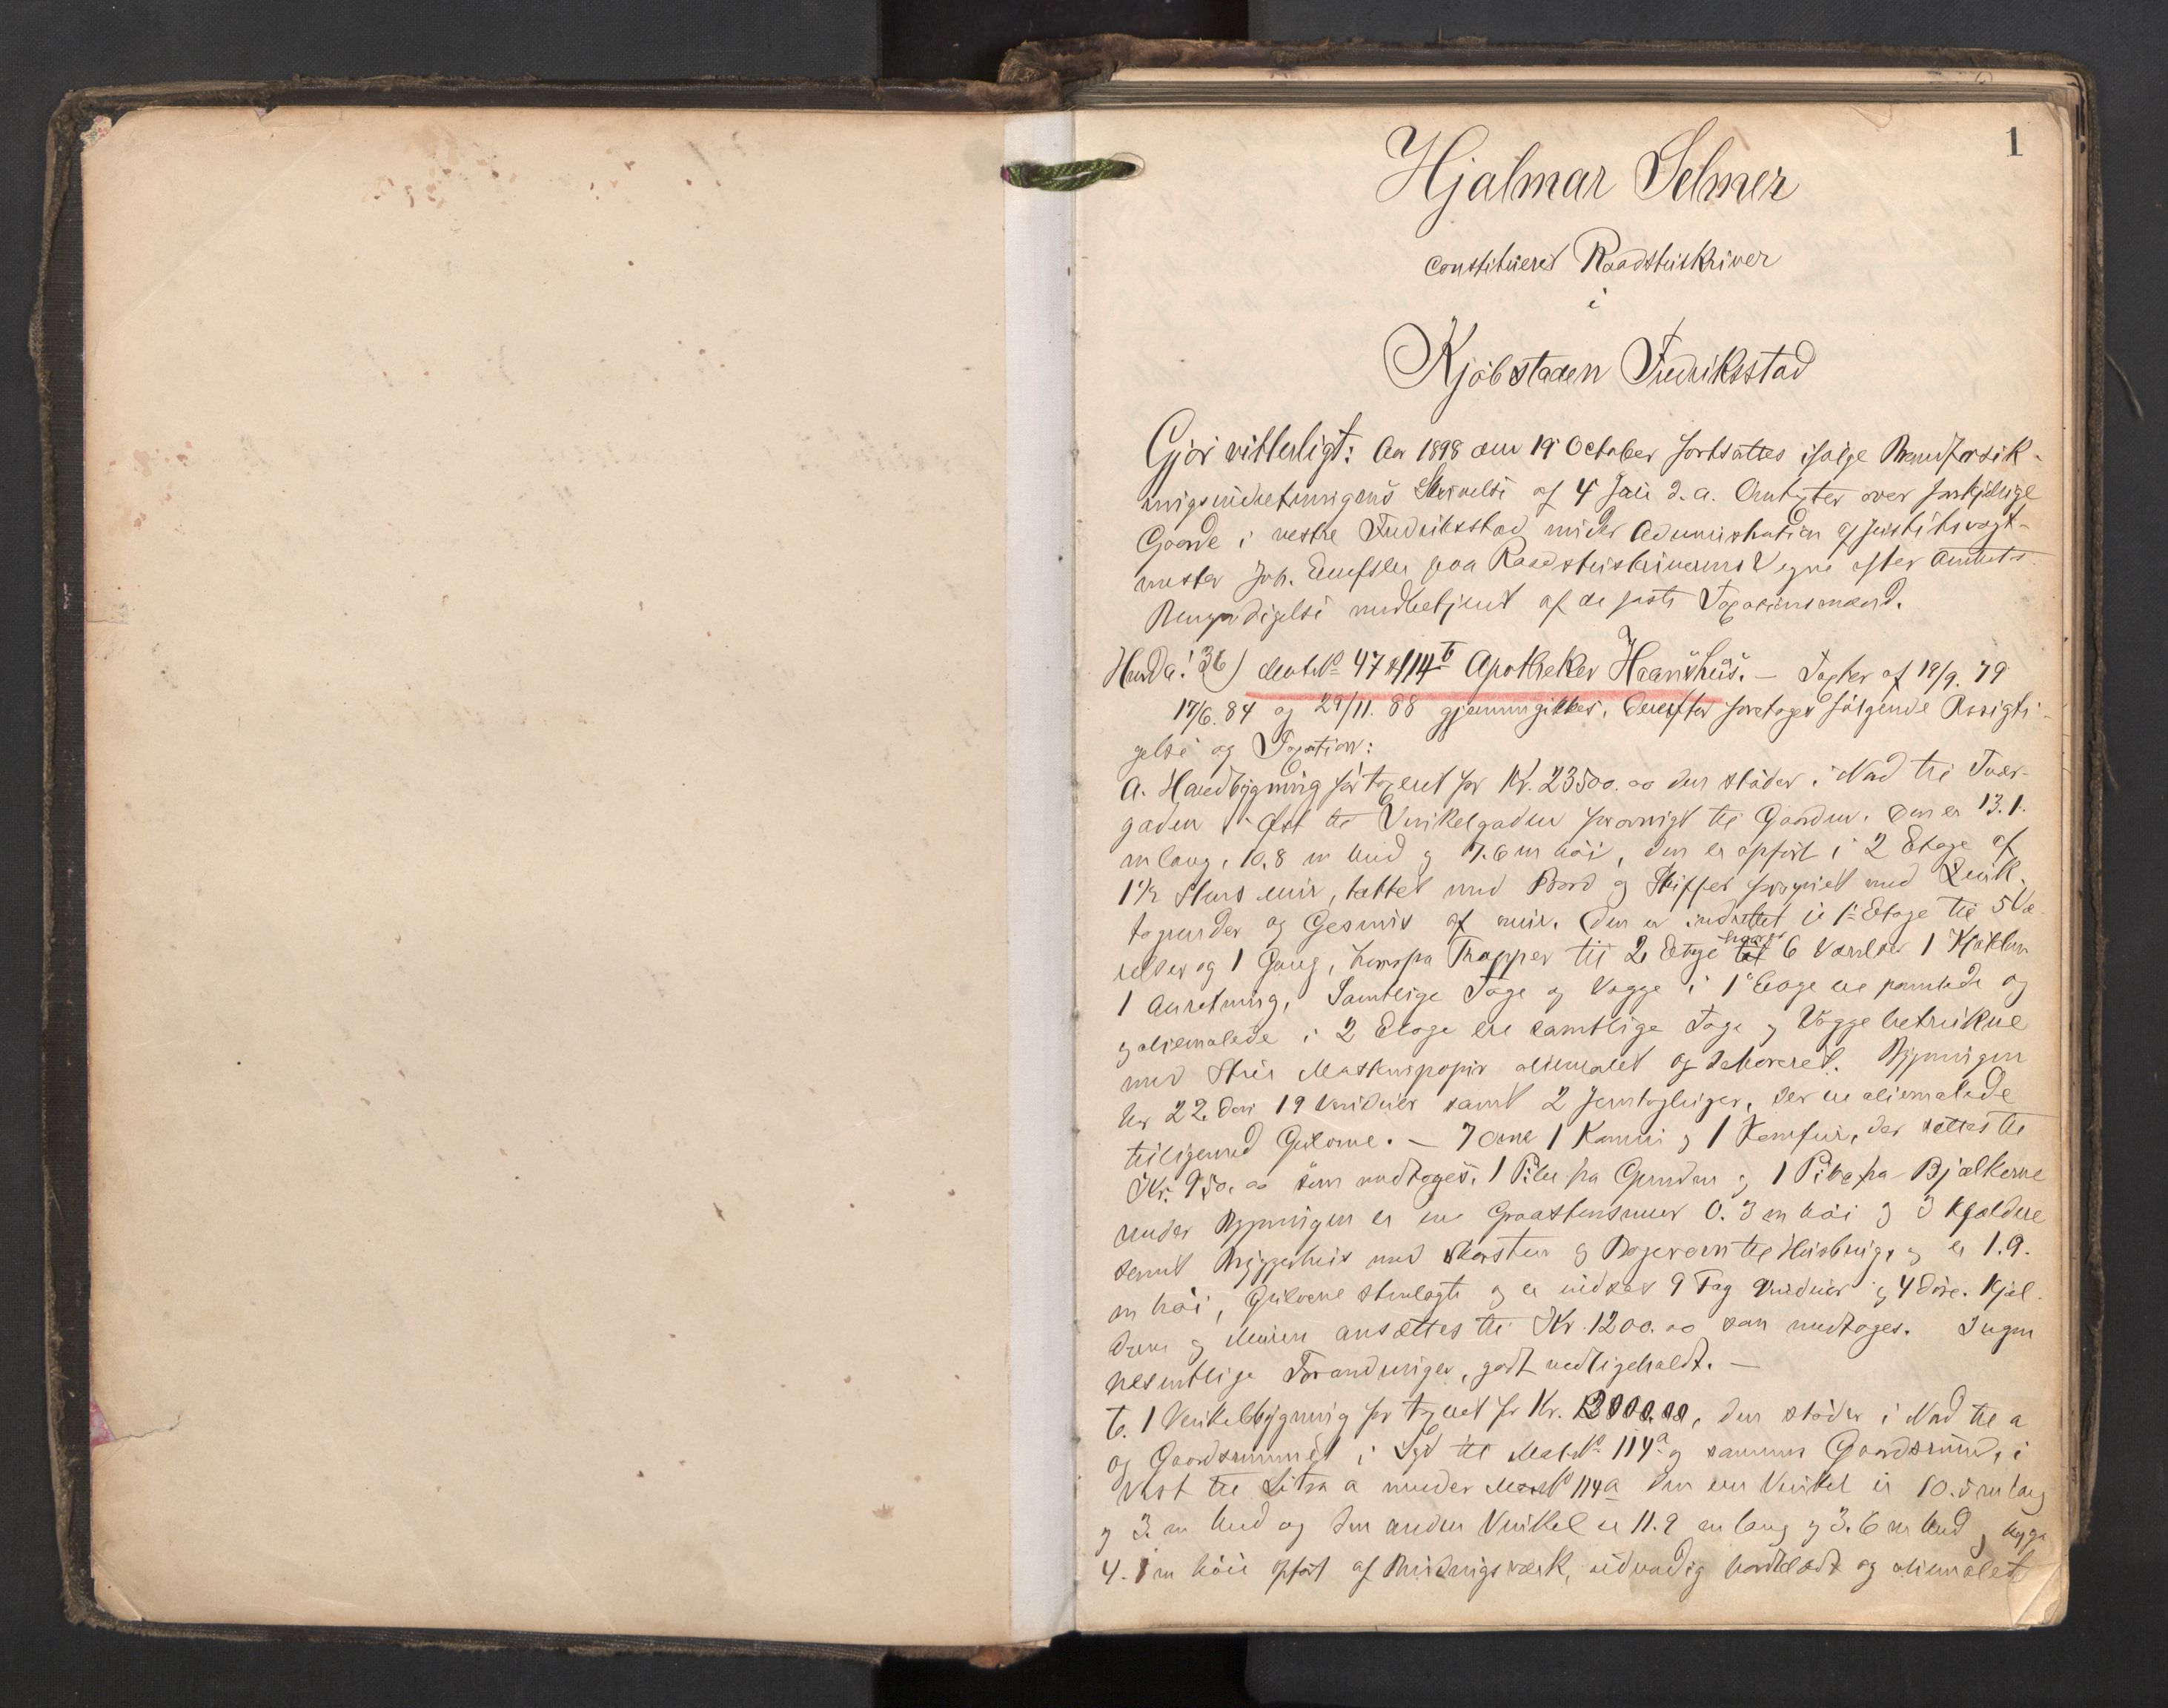 1
Hjalmar Selmer
constitueret Raadstuskriver
i
Kjöbstaden Fredriksstad
Gjör vitterligt: Aar 1898 den 19 October fortsattes ifølge Brandforsik-
ringsindretningens Skrivelse af 4 Juli d. a. Omtaxter over forskjellige
Gaarde i vestre Fredriksstad under Administration af Justitsvagt-
mester Joh. paa Raadstuskriverens Vegne efter Amtets
Bemyndigelse medbetjent af de faste Taxationsmænd.
Hvorda: 36) Mat. No 47 & 114b Apotheker Haans Hus. — Taxter af 19/9. 79
17/6. 84 og 29/11. 88 gjennemgikkes, derefter foretoges følgende Besigti-
gelse og Taxation:
A. Hovedbygning før taxeret for Kr. 23500.00 den støder i Nord til Tvær-
gaden i Øst til Vinkelgaden forøvrigt til Gaarden. Den er 13.1.
m lang, 10.8 m bred og 7.6 m høi, den er opført i 2 Etage af
1 1/2 Stens Mur, tækket med Bord og Skiffer forsynet med Zink-
tagrender og Gesims af mur. Den er indrettet i 1ste Etage til 5 Væ-
relser og 1 Gang, herfra Trapper til 2 Etage hvor er 6 Værelser 1 Kjøkken
1 Anretning, Samtlige Tage og Vægge i 1 Etage ere panelede og
oliemalede i 2 Etage ere samtlige Tage og Vægge betrukne
med Strie Maskinpapir oliemalet og dekoreret. Bygningen
har 22 Døre 19 Vinduer samt 2 der ere oliemalede
tilligemed Gulvene. — 7 Ovne 1 Kamin og 1 Komfur, der sættes til
Kr. 950.00 som medtoges. 1 Pibe fra Grunden og 1 Pibe fra Bjælkerne
under Bygningen er en Graastensmur 0.3 m høi og 3 Kjældere
samt Bryggerhus med Skorsten og Bagerovn til Husbrug, og er 1.9.
m høi, Gulvene stenlagte og er indsat 9 Fag Vinduer og 4 Døre. Kjæl-
dere og Muren ansættes til Kr. 1200.00 som medtoges. Ingen
væsentlige Forandringer, godt vedligeholdt. —
b. 1 Vinkelbygning før taxeret for Kr. 2000.00, den støder i Nord til a
og Gaardsrummet i Syd til Mat. No 114a og sammes Gaardsrum, i
Vest til Litra a under Mat. No 114a den ene Vinkel er 10.5 m lang
og 3. m bred og den anden Vinkel er 11.9 m lang og 3.6 m bred, begge
4.1 m høie opført af Bindingsværk, udvendig bordklædt og oliemalet